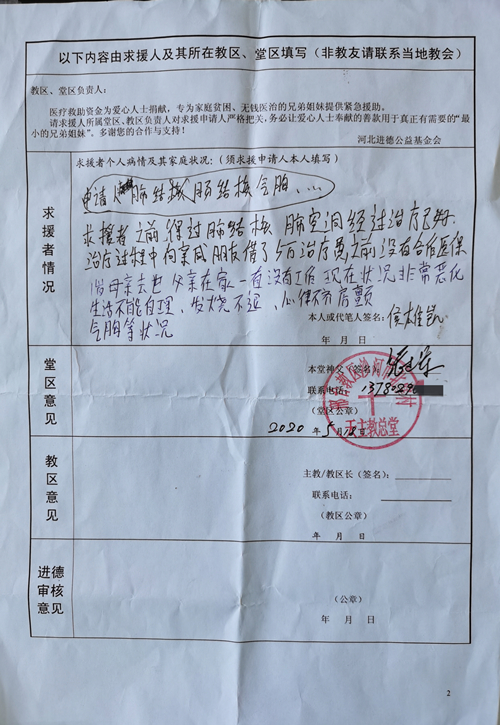 以下内容由求援人及其所在教区、堂区填写（非教友请联系当地教会）
教区、堂区负责人：
医疗救助资金为爱心人士捐献，专为家庭贫困、无钱医治的兄弟姐妹提供紧急援助。
请求援人所属堂区、教区负责人对求援申请人严格把关，务必让爱心人士奉献的善款用于真正有需要的“最
小的兄弟姐妹”，多谢您的合作与支持！
河北进德公益基金会
求援者情况
求援者个人病情及其家庭状况：（须求援申请人本人填写）
申请 肺结核 肠结核 气胸、...
求援者之前得过肺结核 肺空洞经过治疗已好
治疗过程中向亲戚朋友借了 万治疗费之前没有合作医保
岁母亲去世 父亲在家一直没有工作 现在状况非常恶化
生活不能自理、发烧不退、心律不齐 房颤
气胸等状况
本人或代笔人签名：侯雄凯
年 月 日
堂区意见
本堂神父（签名）：
联系电话：13780296
（堂区公章）
天主教总堂
2020 年 5 月 12 日
教区意见
主教/教区长（签名）：
联系电话：
（教区公章）
年 月 日
进德审核意见
（公章）
年 月 日
2